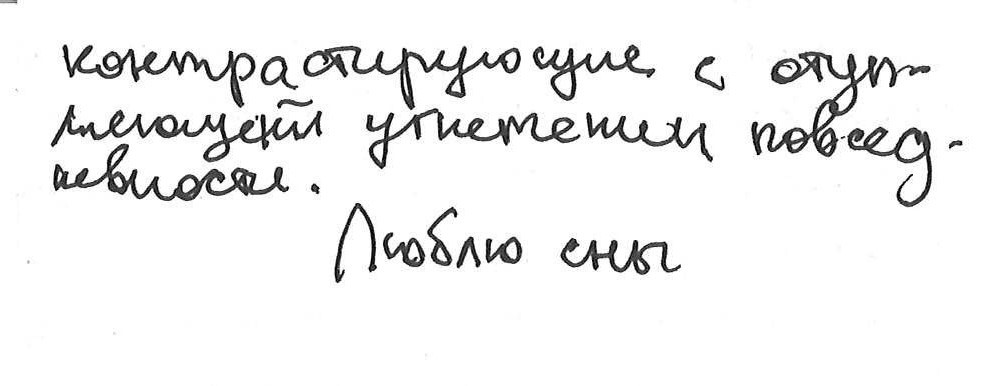 контрастирующие с отуп-
ляющей угнетением повсед-
невности.
Люблю сны